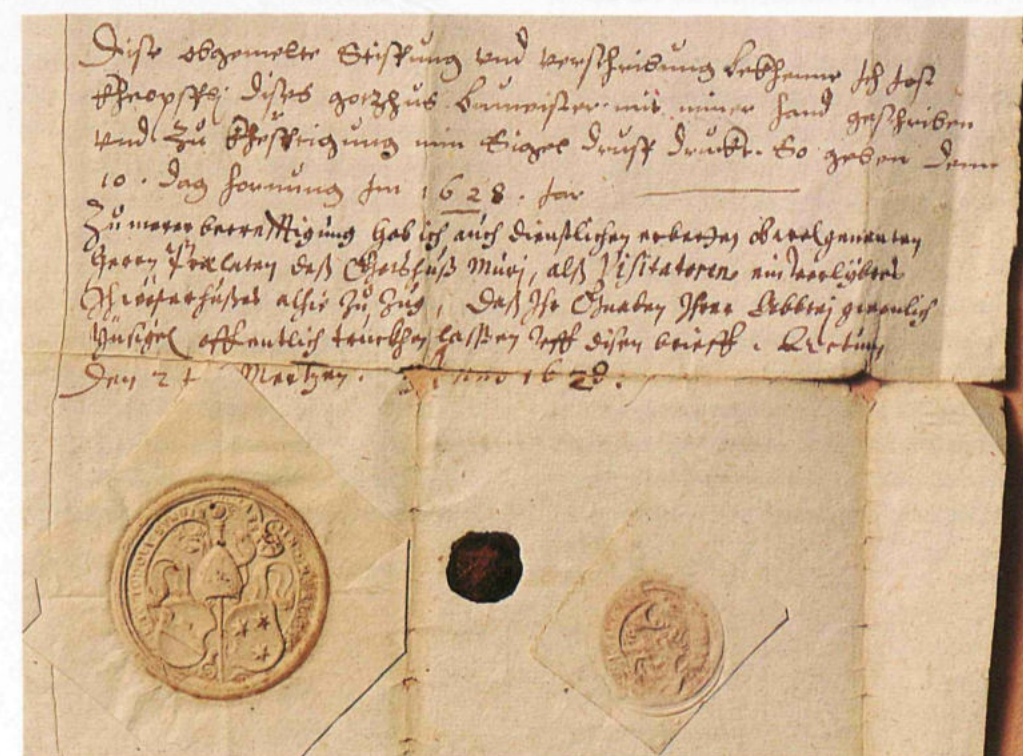 Dise obgemelte Stifftung und verschribung bekhenne Ich Jost
dises gotzhus buwmeister mit miner hand geschriben
und zu min Sigel druff druckt. So geben denn
10. dag hornung Im 1628. Jar
Zu merer becrefftigung hab ich auch dienstlichen erbetten obwolgenanten
Herren Prælaten deß Gottshuß Muri, alß Visitatoren
Schwösterhußes alhie zu Zug, daß Ihr Gnaden Ihrer Abbtei
Insigel offentlich truckhen lassen uff disen brieff. Actum
den 21 Mertzen. Anno 1628.